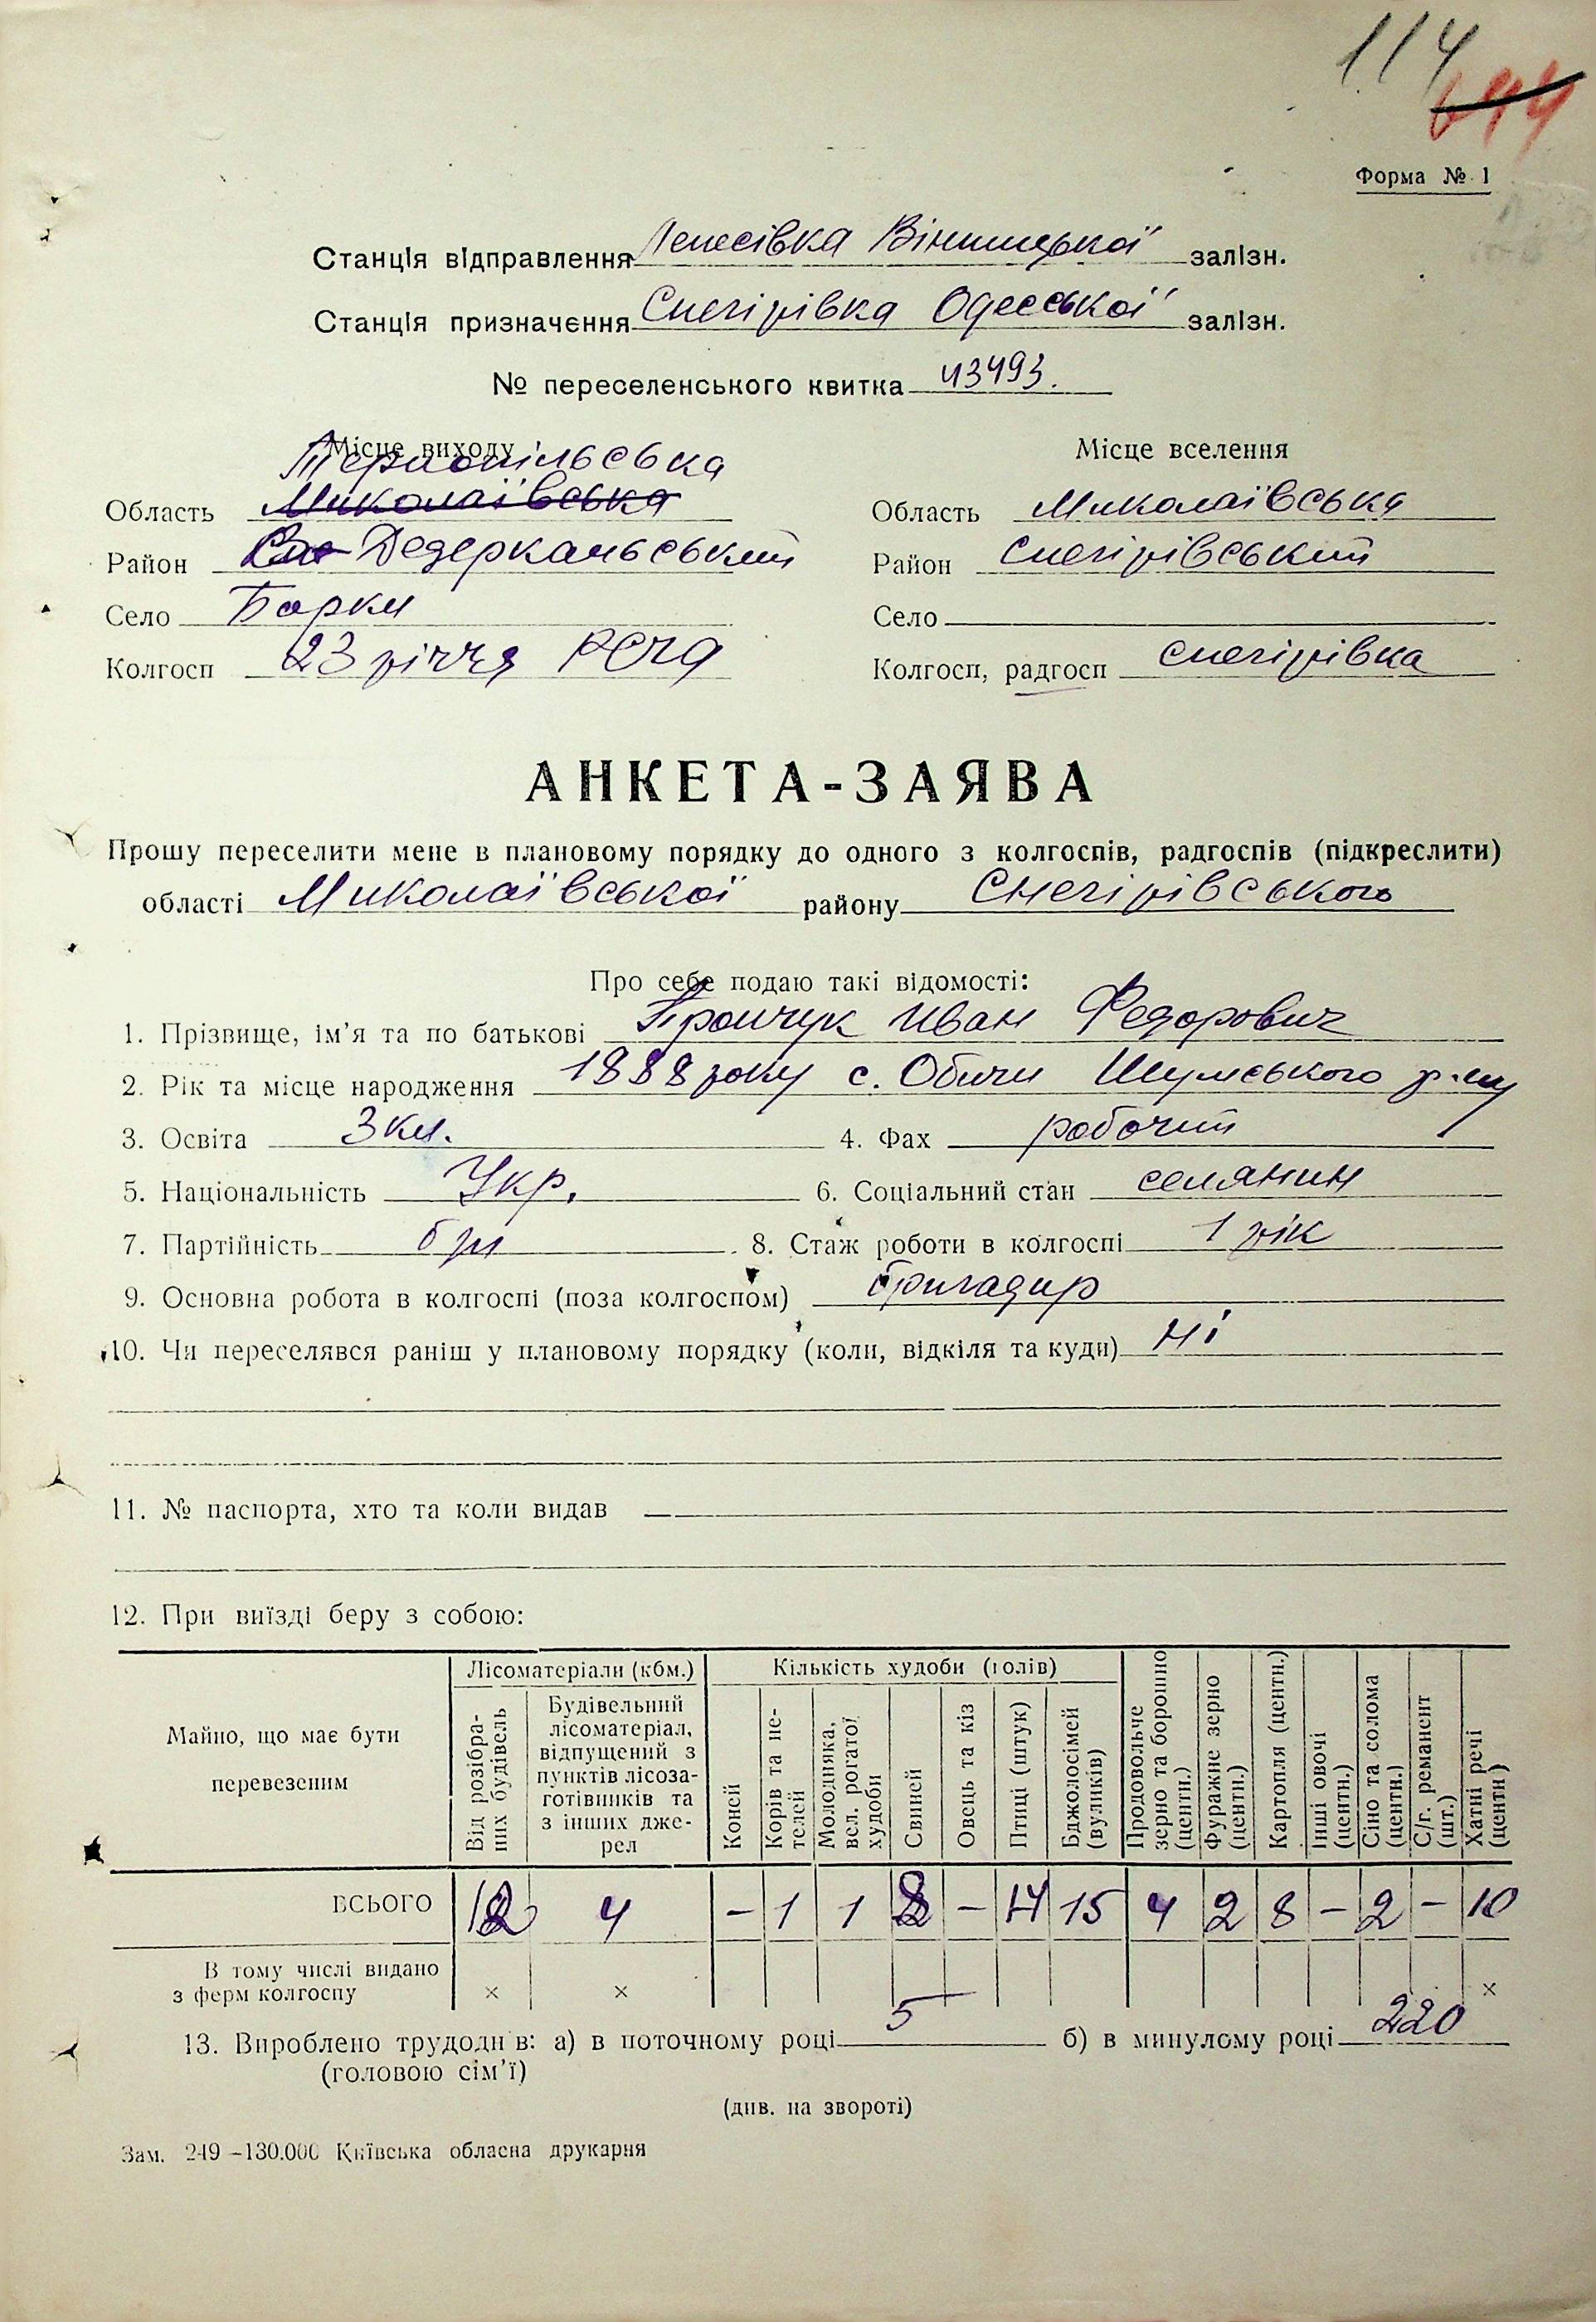 114
644
Форма № 1
Станція відправлення Лепесівка Вінницької залізн.
Станція призначення Снегірівка Одеської залізн.
№ переселенського квитка 43493.
Місце виходу
Місце вселення
Тернопільська
Область Миколаївська
Область Миколаївська
Район Сне Дедеркальський
Район Снегірівський
Село Борки
Село
Колгосп 23 річчя РСЧА
Колгосп, радгосп Снегірівка
АНКЕТА-ЗАЯВА
Прошу переселити мене в плановому порядку до одного з колгоспів, радгоспів (підкреслити)
області Миколаївської району Снегірівського
Про себе подаю такі відомості:
1. Прізвище, ім’я та по батькові Прончук Иван Федорович
2. Рік та місце народження 1888 року с. Обичи Шумського р-ну
3. Освіта 3 кл. 4. Фах робочий
5. Національність Укр. 6. Соціальний стан селянин
7. Партійність б/п 8. Стаж роботи в колгоспі 1 рік
9. Основна робота в колгоспі (поза колгоспом) бригадир
10. Чи переселявся раніш у плановому порядку (коли, відкіля та куди) Ні
11. № паспорта, хто та коли видав —
12. При виїзді беру з собою:
Майно, що має бути перевезеним
Лісоматеріали (кбм.)
Від розібраних будівель
Будівельний лісоматеріал, відпущений з пунктів лісозаготівників та з інших джерел
Кількість худоби (голів)
Коней
Корів та нетелей
Молодняка, вел. рогатої худоби
Свиней
Овець та кіз
Птиці (штук)
Бджолосімей (вуликів)
Продовольче зерно та борошно (центн.)
Фуражне зерно (центн.)
Картопля (центн.)
Інші овочі (центн.)
Сіно та солома (центн.)
С/г. реманент (шт.)
Хатні речі (центн)
ВСЬОГО 12 4 – 1 1 2 – 14 15 4 2 8 – 2 – 10
В тому числі видано з ферм колгоспу × × ×
13. Вироблено трудоднів: а) в поточному році 5 б) в минулому році 220
(головою сім’ї)
(див. на звороті)
Зам. 249 –130.000 Київська обласна друкарня